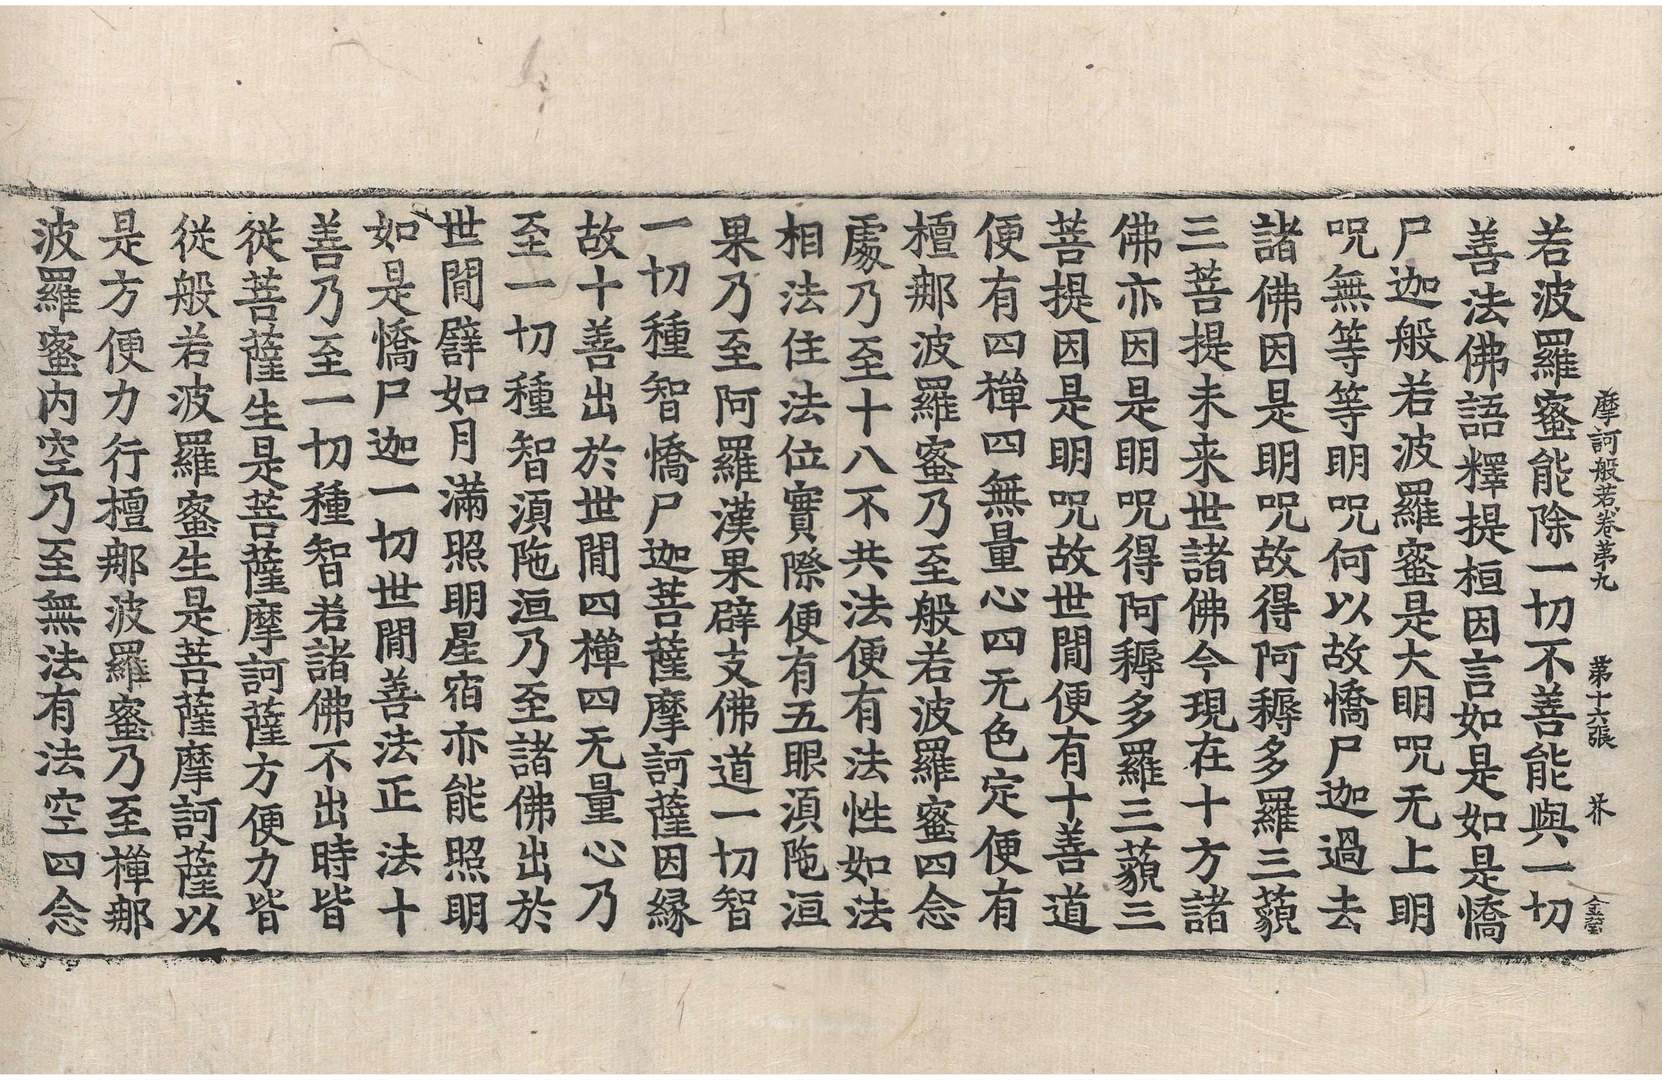 摩訶般若卷第九 第十六張 芥
若波羅蜜能除一切不善能與一切
善法佛語釋提桓因言如是如是憍
尸迦般若波羅蜜是大明呪无上明
呪無等等明呪何以故憍尸迦過去
諸佛因是明呪故得阿耨多羅三藐
三菩提未来世諸佛今現在十方諸
佛亦因是明呪得阿耨多羅三藐三
菩提因是明呪故世閒便有十善道
便有四禪四無量心四无色定便有
檀那波羅蜜乃至般若波羅蜜四念
處乃至十八不共法便有法性如法
相法住法位實際便有五眼湏陁洹
果乃至阿羅漢果辟支佛道一切智
一切種智憍尸迦菩薩摩訶薩因緣
故十善出於世閒四禪四无量心乃
至一切種智湏陁洹乃至諸佛出於
世閒譬如月滿照明星宿亦能照明
如是憍尸迦一切世閒善法正法十
善乃至一切種智若諸佛不出時皆
從菩薩生是菩薩摩訶薩方便力皆
從般若波羅蜜生是菩薩摩訶薩以
是方便力行檀那波羅蜜乃至禪那
波羅蜜内空乃至無法有法空四念